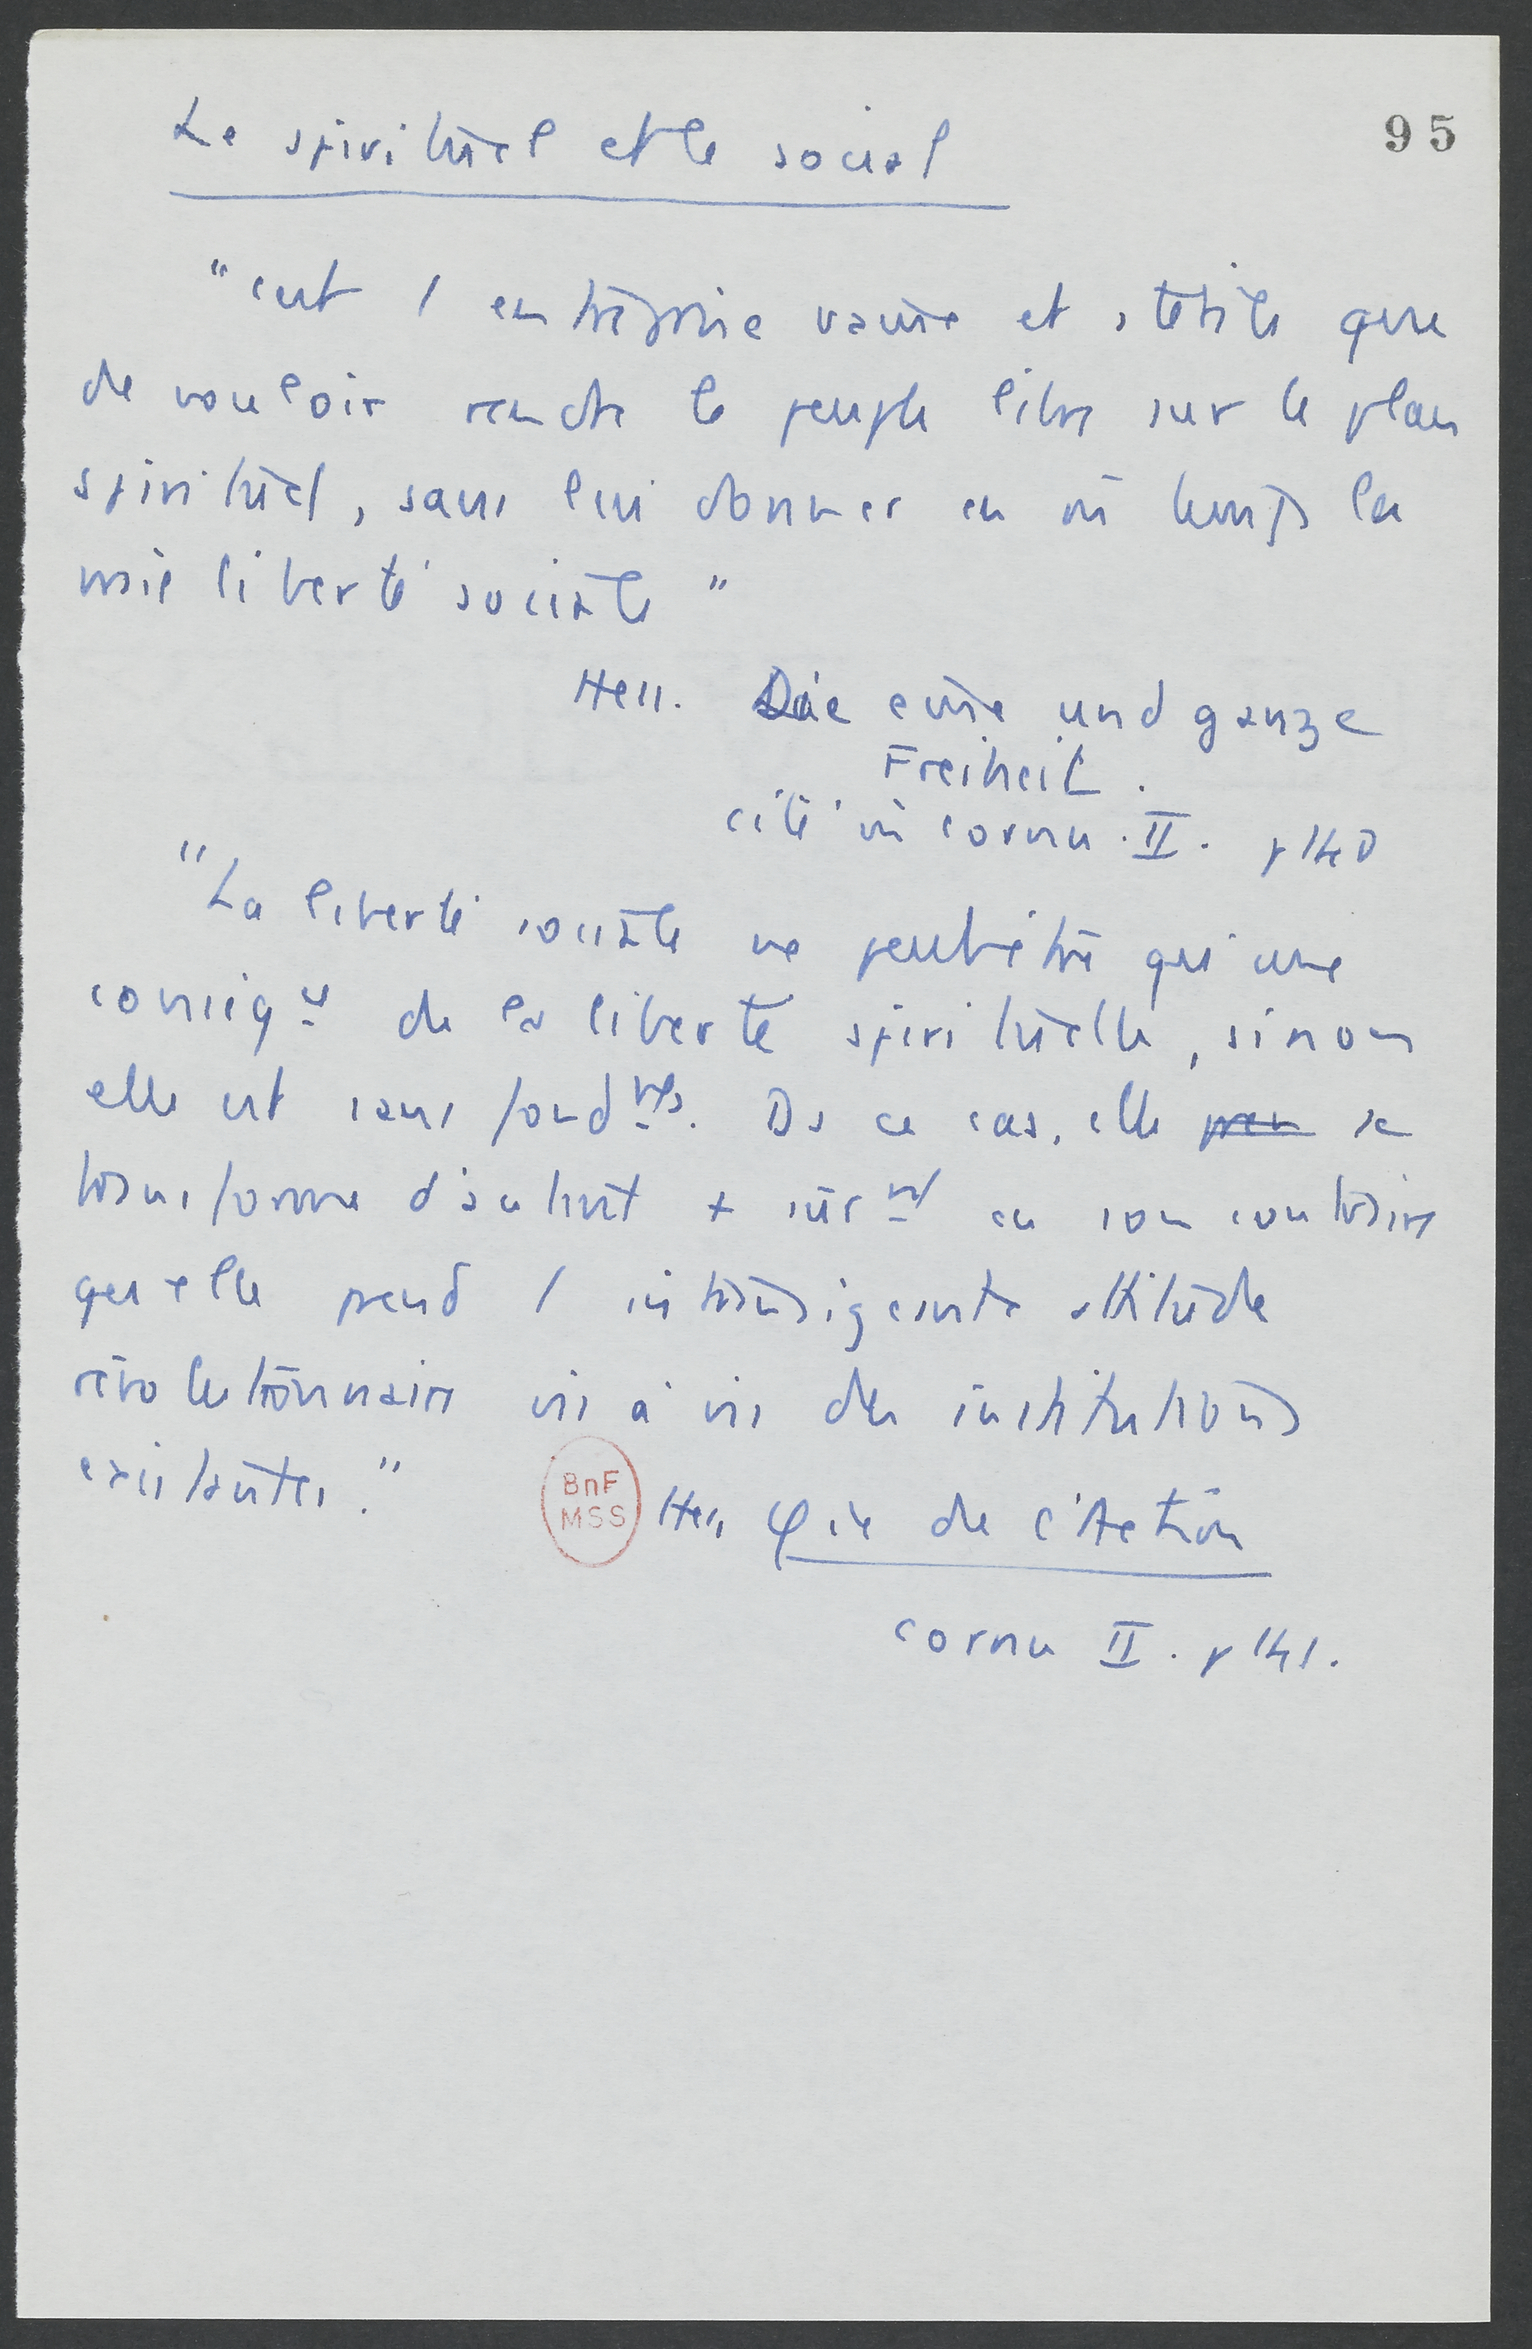 95
Le spirituel et le social
"c'est / entreprise vaine et stérile que
de vouloir rendre le peuple libre sur le plan
spirituel, sans lui donner en m̂ temps la
vraie liberté sociale"
Hess. Die eine und ganze
Freiheit.
cité in Cornu. II. p 140
"La liberté sociale ne peut être qu'une
conséq ce de la liberté spirituelle, sinon
elle est sans fond mts. Ds ce cas, elle se
transforme d'autant + sûr mt en son contraire
qu'elle prend / intransigeante attitude
révolutionnaire vis à vis des institutions
existantes."
BnF
MSS
Hess φie de l'Action
Cornu II. p 141.